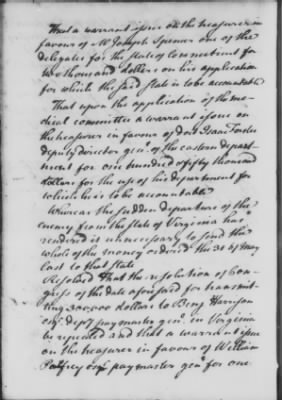 That a warrant issue on the treasurer in
favour of Mr Joseph Spencer one of the
delegates for the state of Connecticut for
two thousand dollars on his application
for which the said state is to be accountable
That upon the application of the medical
committee a warrant issue on
the treasurer in favour of Doctr Isaac Foster
deputy director genl of the eastern department
for one hundred & fifty thousand
dollars for the use of his department for
which he is to be accountable
Whereas the sudden departure of the
enemy from the state of Virginia has
rendered it unnecessary to send the
whole of the money ordered the 31 of May
last to that state
Resolved That the resolution of Congress
of the date aforesaid for transmitting
300,000 dollars to Benj Harrison
esqr depy paymaster genl in Virginia
be repealed and that a warrant issue
on the treasurer in favour of William
Palfrey esqr paymaster genl for one